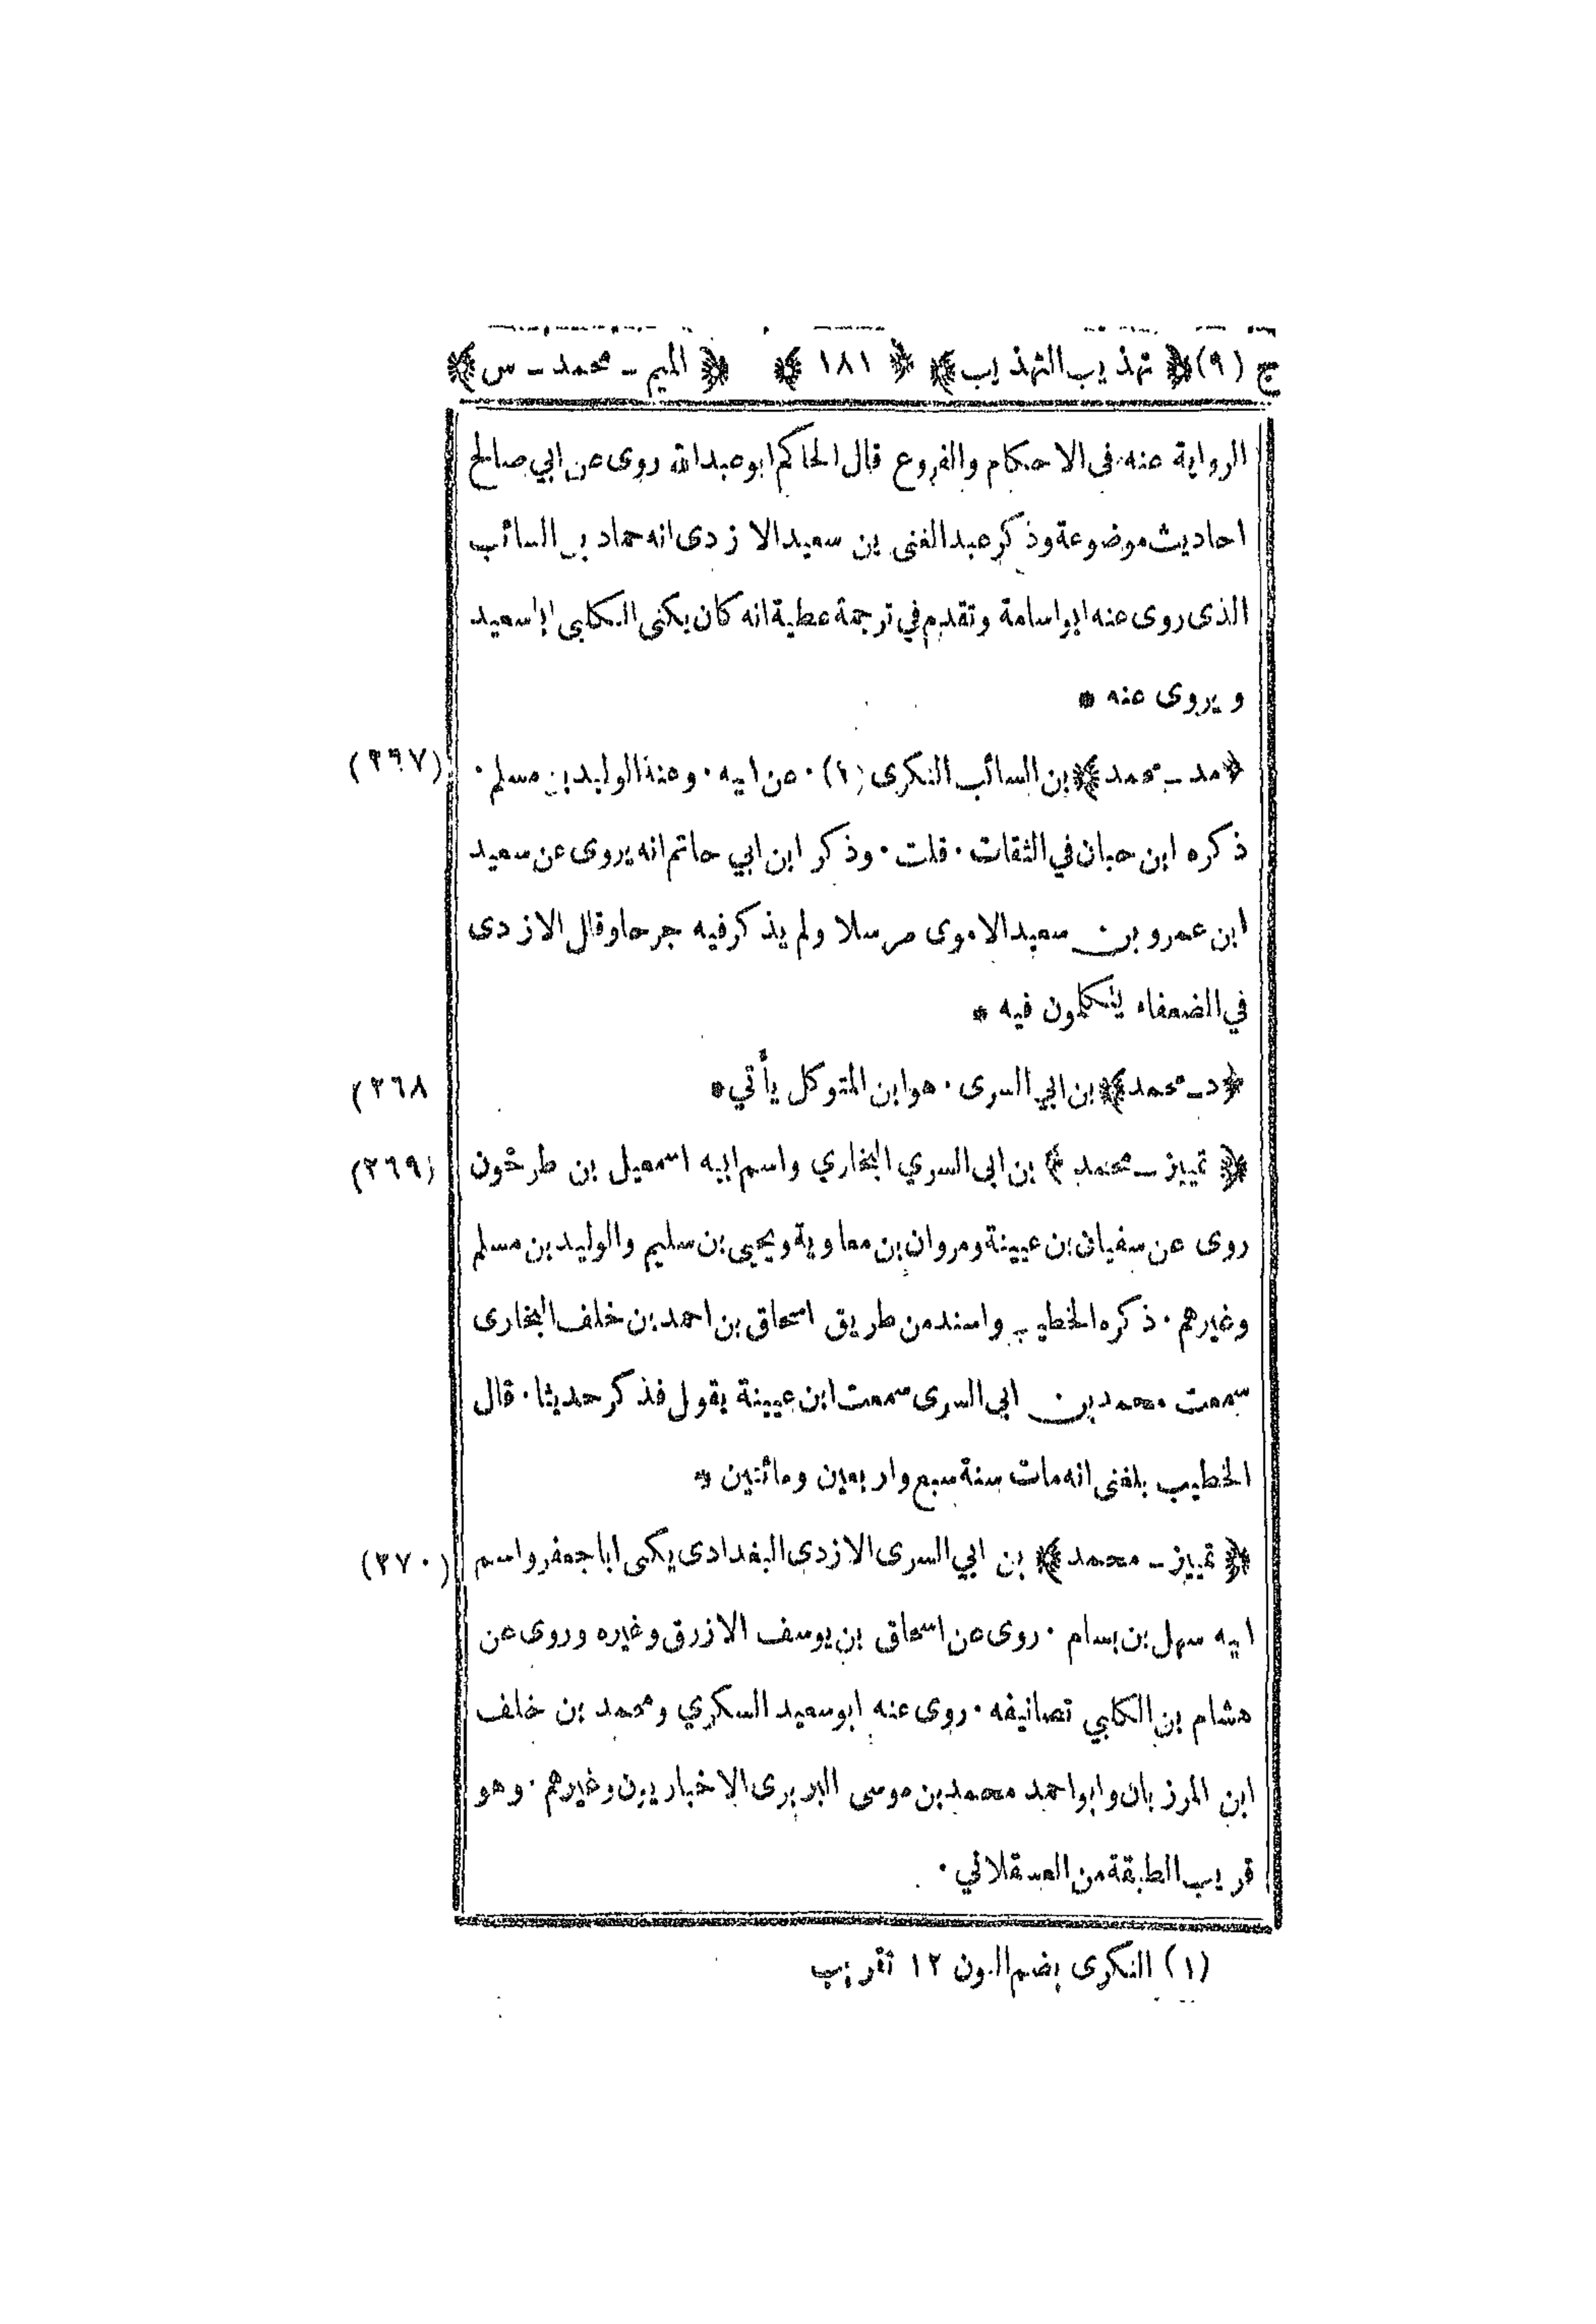 ج (٩) ﴿ تهذيب التهذيب ﴾ ﴿ ١٨١ ﴾ ﴿ الميم ـ محمد ـ س ﴾
الرواية عنه فى الاحكام والفروع قال الحاكم ابو عبدالله روى عن ابي صالح
احاديث موضوعة وذكر عبد الغنى بن سعيد الازدى انه حماد بن السائب
الذى روى عنه ابو اسامة وتقدم في ترجمة عطية انه كان يكنى الكلبى ابا سعيد
ويروى عنه *
﴿ مد ـ محمد ﴾ بن السائب النكرى (١) ٠ عن ابيه ٠ وعنه الوليد بن مسلم ٠ (٢٦٧)
ذكره ابن حبان في الثقات ٠ قلت ٠ وذكر ابن ابي حاتم انه يروى عن سعيد
ابن عمرو بن سعيد الاموى مرسلا ولم يذكر فيه جرحا وقال الازدى
في الضعفاء يتكلمون فيه *
﴿ د ـ محمد ﴾ بن ابي السرى ٠ هو ابن المتوكل يأتي * (٢٦٨
﴿ تمييز ـ محمد ﴾ بن ابى السري البخاري واسم ابيه اسمعيل بن طرخون (٢٦٩)
روى عن سفيان بن عيينة ومروان بن معاوية ويحيى بن سليم والوليد بن مسلم
وغيرهم ٠ ذكره الخطيب واسند من طريق اسحاق بن احمد بن خلف البخارى
سمعت محمد بن ابي السرى سمعت ابن عيينة يقول فذكر حديثا ٠ قال
الخطيب بلغنى انه مات سنة سبع واربعين ومائتين *
﴿ تمييز ـ محمد ﴾ بن ابي السرى الازدى البغدادى يكنى ابا جعفر واسم (٢٧٠)
ابيه سهل بن بسام ٠ روى عن اسحاق بن يوسف الازرق وغيره وروى عن
هشام بن الكلبي تصانيفه ٠ روى عنه ابو سعيد السكري ومحمد بن خلف
ابن المرزبان وابو احمد محمد بن موسى البربرى الاخباريين وغيرهم ٠ وهو
قريب الطبقة من العسقلاني ٠
(١) النكرى بضم النون ١٢ تقريب